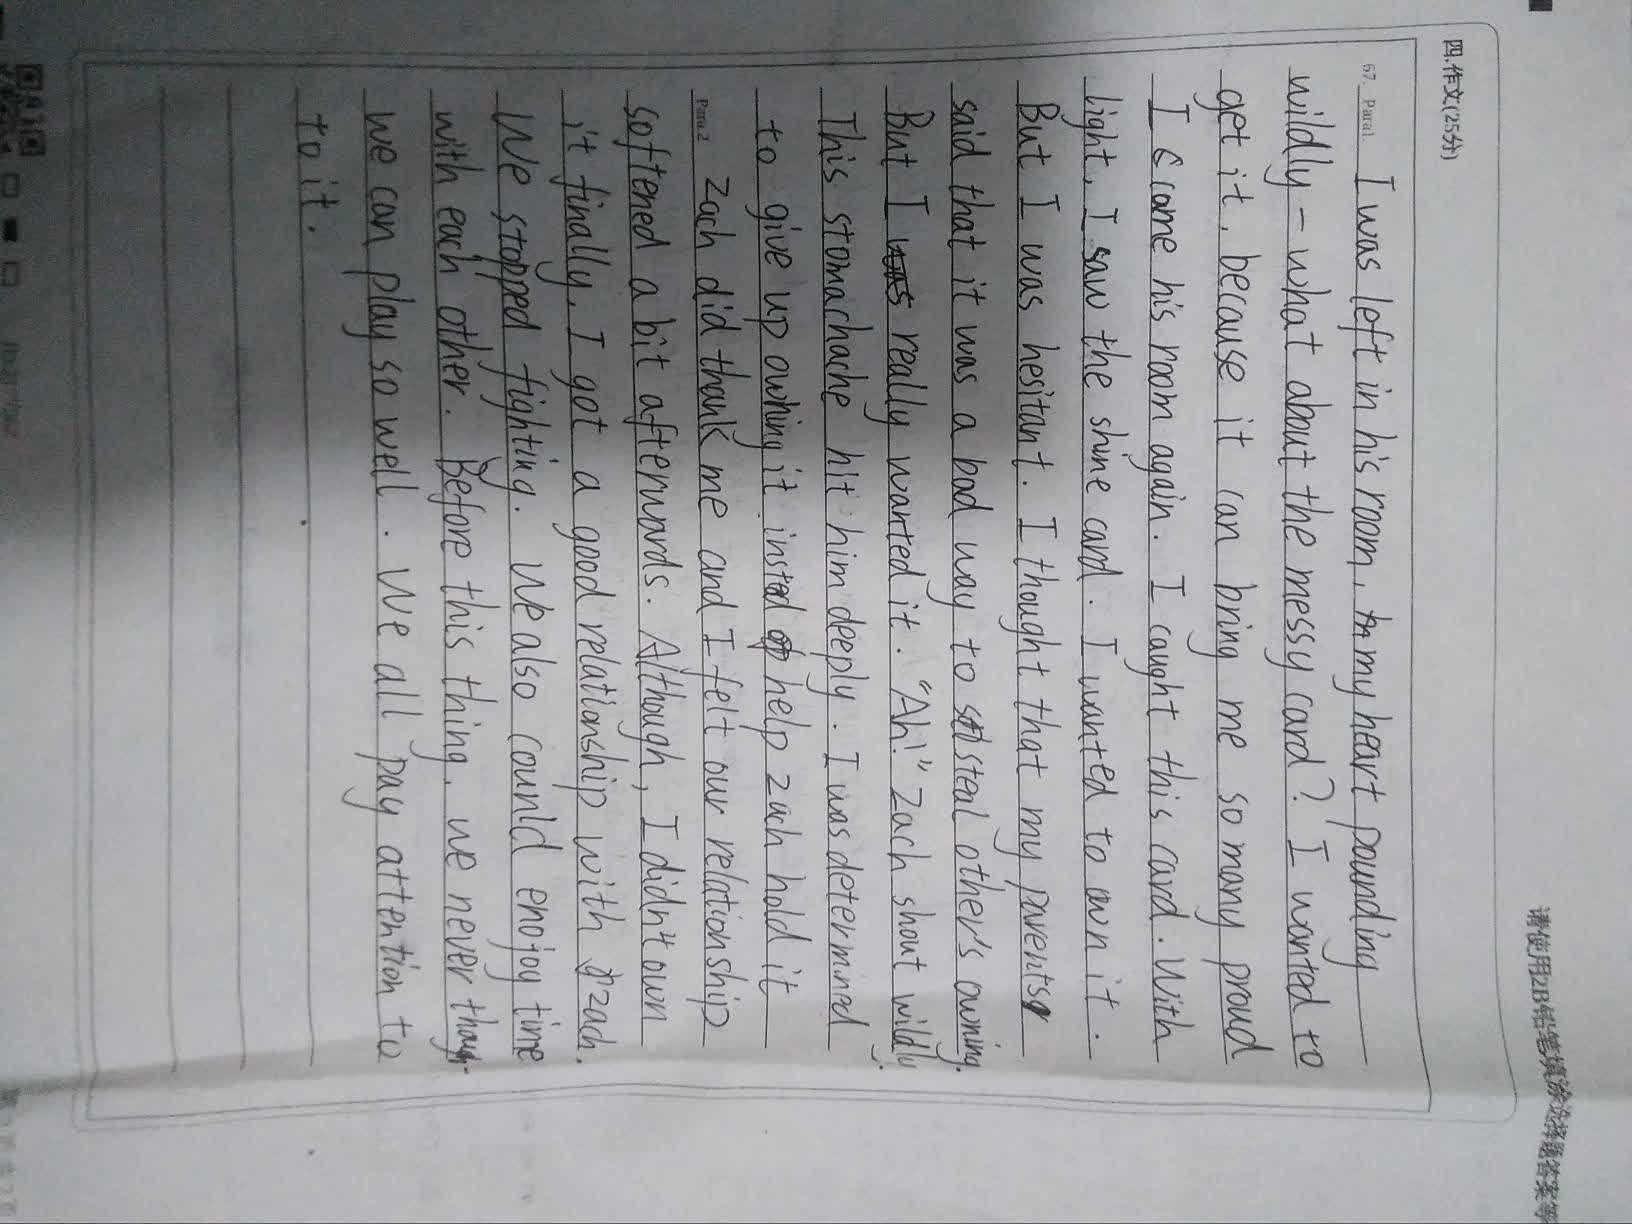 请使用2B铅笔填涂选择题答案等
四.作文(25分)
67. Para1. I was left in his room, my heart pounding
wildly - what about the messy card? I wanted to
get it, because it can bring me so many proud
I came his room again. I caught this card. With
light, I saw the shine card. I wanted to own it.
But I was hesitant. I thought that my parents
said that it was a bad way to steal other's owning.
But I really wanted it. "Ah!" Zach shout wildly.
This stomachache hit him deeply. I was determined
to give up owning it insted of help zach hold it
Para 2 Zach did thank me and I felt our relationship
softened a bit afterwards. Although, I didn't own
it finally, I got a good relationship with zach.
We stopped fighting. We also counld enojoy time
with each other. Before this thing, we never though
we can play so well. We all pay attention to
to it.